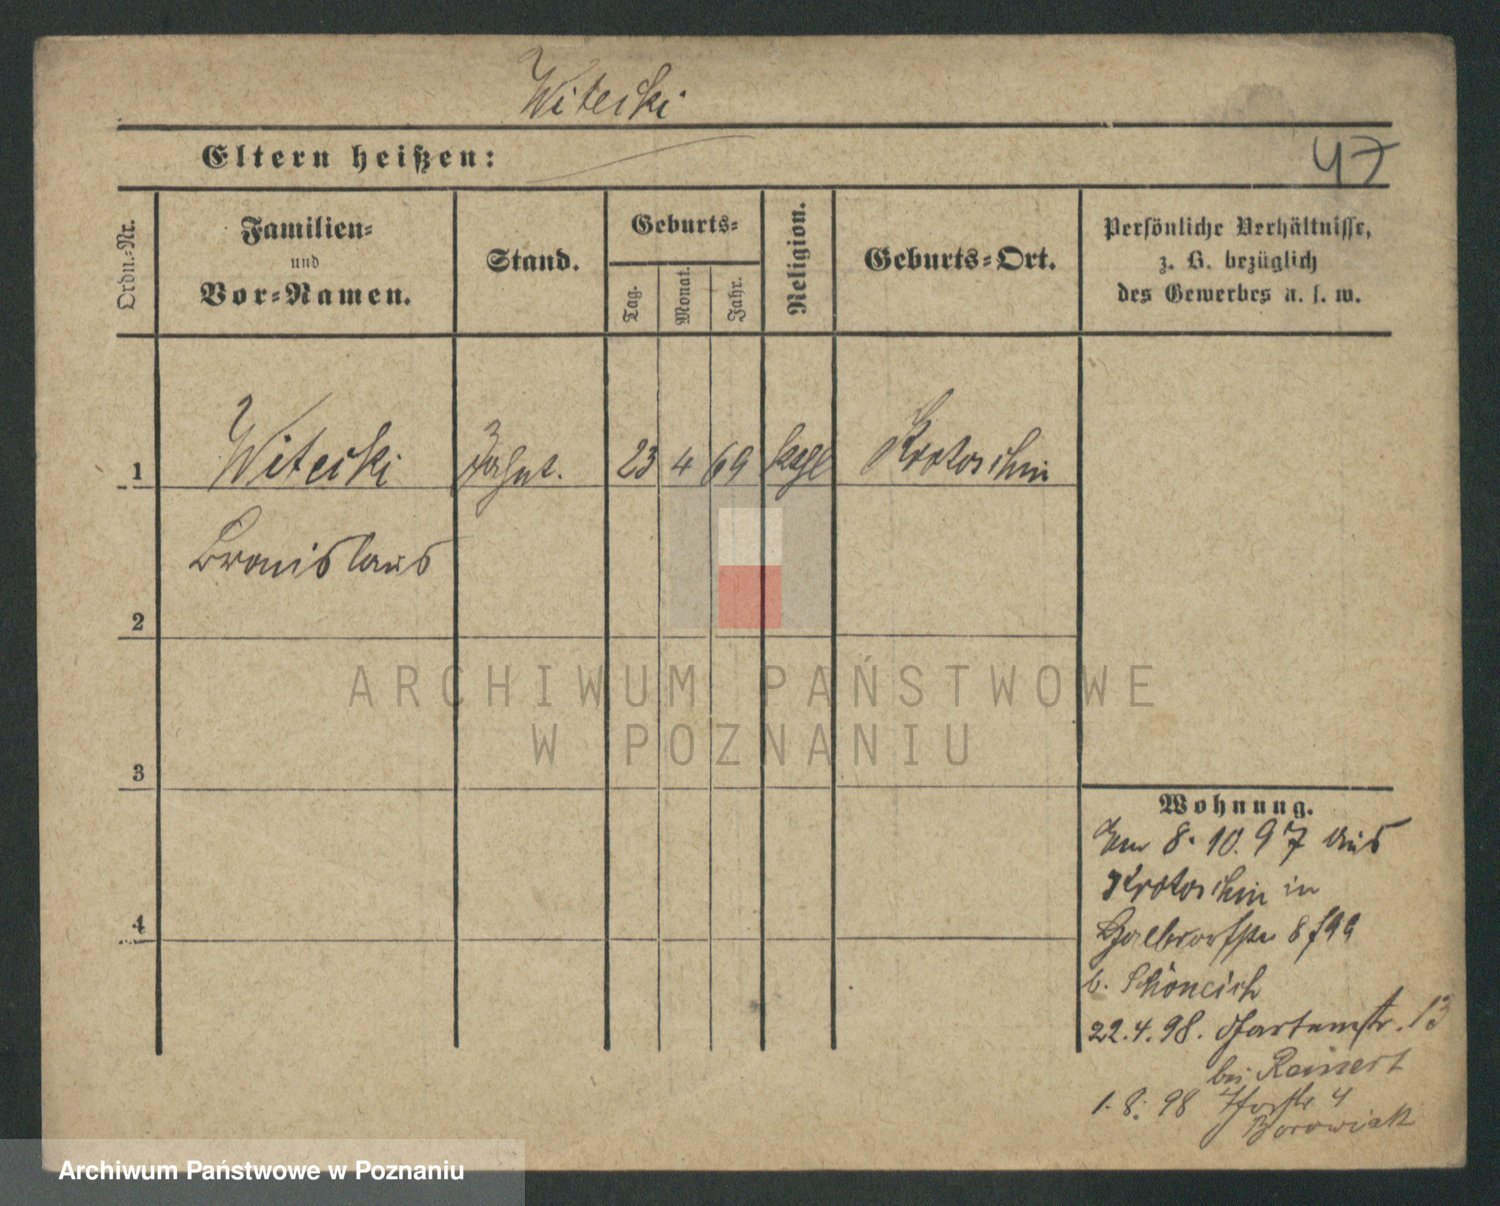 Witecki
Eltern heißen:
47
Ordn.-Nr.
Familien-
und
Vor-Namen.
Stand.
Geburts-
Tag.
Monat.
Jahr.
Religion.
Geburts-Ort.
Persönliche Verhältnisse,
z. B. bezüglich
des Gewerbes u. s. w.
1 Witecki 23 4 69 Krotoschin
Bronislaus
2
3
4
Wohnung.
8.10.97 aus
Krotoschin in
b.
22.4.98. Gartenstr. 13
bei Reinert
1.8.98 4
Borowiak
ARCHIWUM PAŃSTWOWE
W POZNANIU
Archiwum Państwowe w Poznaniu